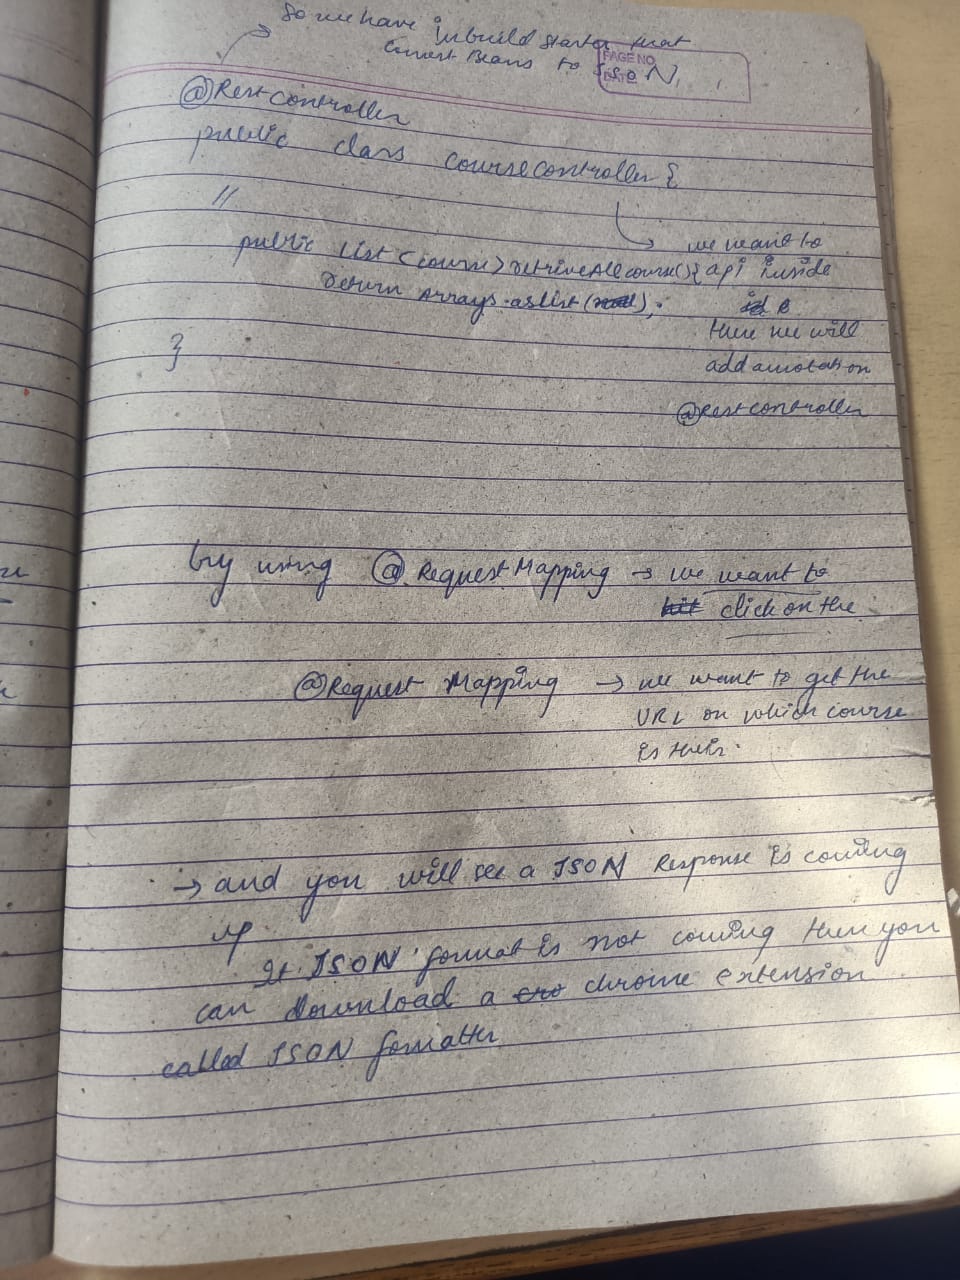 So we have inbuild starter that
convert Beans to JSON
PAGE NO
DATE
@Rest controller
public class course controller {
//
we want to
public List<course> retrieveAllcourse() { api inside
return Arrays.aslist( );
there we will
}
add annotation
@rest controller
by using @RequestMapping → we want to
hit click on the
@Request Mapping → we want to get the
URL on which course
is their.
→ and you will see a JSON Response is coming
up
If JSON format is not coming then you
can download a chrome extension
called JSON formatter